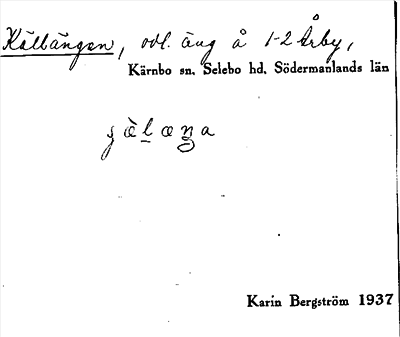 Källängen, odl. äng å 1-2 Årby,
Kärnbo sn. Selebo hd. Södermanlands län
Karin Bergström 1937